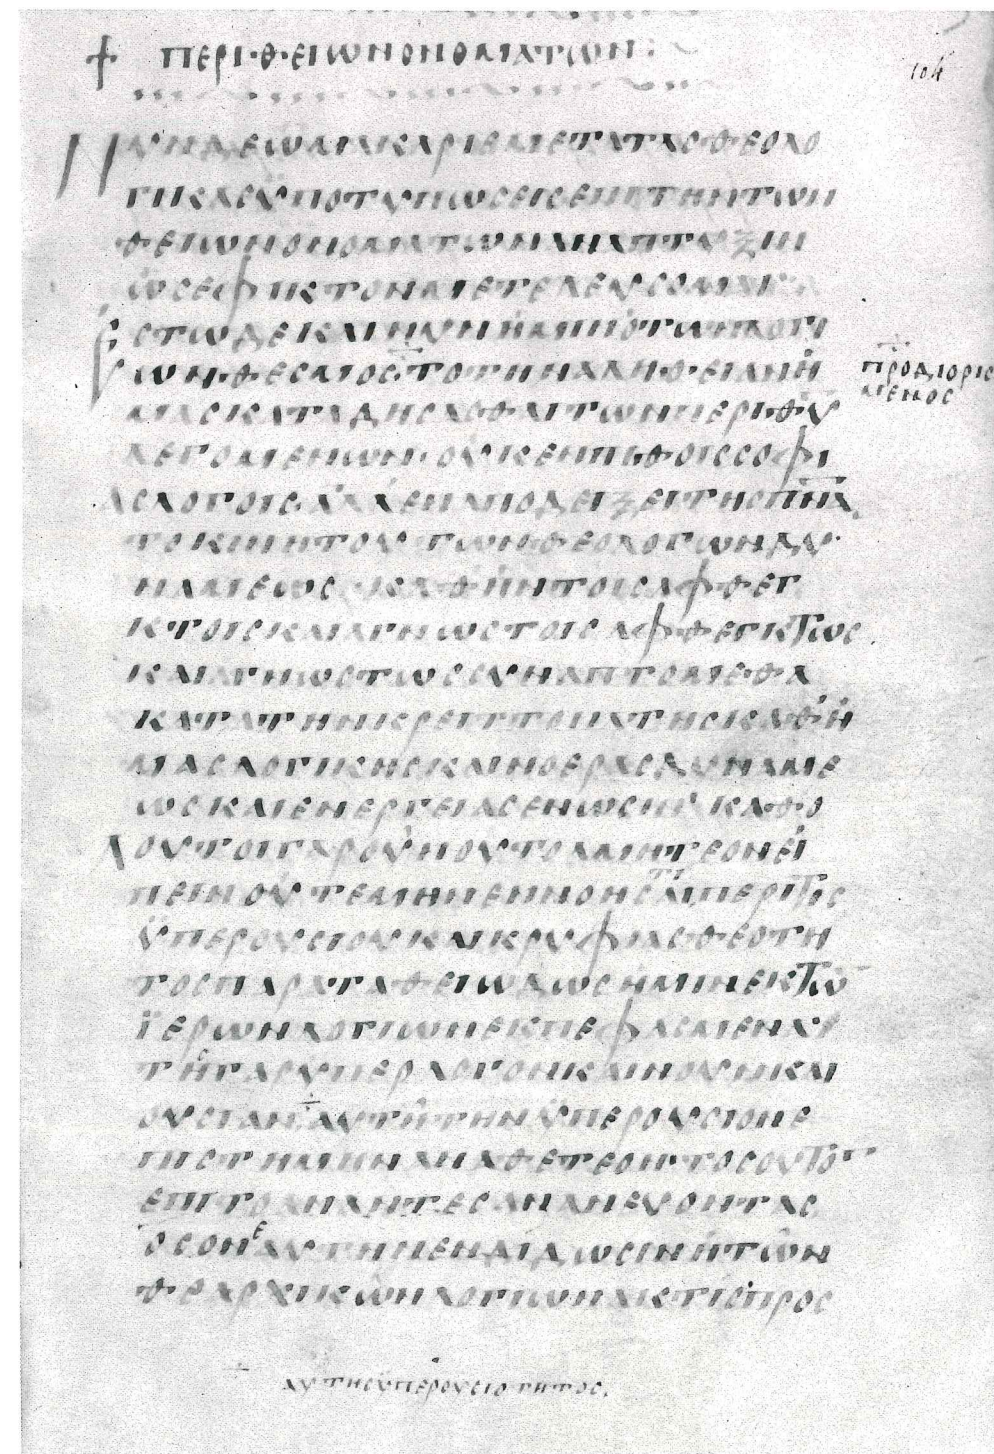 + ΠΕΡΙ·Θ·ΕΙΩΝΟΝΟΜΑΤΩΝ:
104
ΝΥΝΔΕΩΜΑΚΑΡΙΕΜΕΤΑΤΑΣΘΕΟΛΟ
ΓΙΚΑΣΫΠΟΤΥΠΩΣΕΙΣΕΠΙΤΗΝΤΩΝ
ΘΕΙΩΝΟΝΟΜΑΤΩΝΑΝΑΠΤΥΞΙΝ
ΩΣΕΦΙΚΤΟΝΜΕΤΕΛΕΥΣΟΜΑΙ
ΕΣΤΩΔΕΚΑΙΝΥΝΗΜΙΝΟΤΩΝΛΟΓΙ
ΩΝΘΕΣΜΟΣΤΟΤΗΝΑΛΗΘΕΙΑΝΗ
ΠΡΟΔΙΟΡΙΣ
ΜΕΝΟΣ
ΜΑΣΚΑΤΑΔΗΣΑΣΘΑΙΤΩΝΠΕΡΙΘΥ
ΛΕΓΟΜΕΝΩΝ·ΟΥΚΕΝΠΙΘΟΙΣΣΟΦΙ
ΑΣΛΟΓΟΙΣΑΛΛΕΝΑΠΟΔΕΙΞΕΙΤΗΣΠΝ
ΤΟΚΙΝΗΤΟΥΤΩΝΘΕΟΛΟΓΩΝΔΥ
ΝΑΜΕΩΣ·ΚΑΘΗΝΤΟΙΣΑΦΘΕΓ
ΚΤΟΙΣΚΑΙΑΓΝΩΣΤΟΙΣΑΦΘΕΓΚΤΩΣ
ΚΑΙΑΓΝΩΣΤΩΣΣΥΝΑΠΤΟΜΕΘΑ
ΚΑΤΑΤΗΝΚΡΕΙΤΤΟΝΑΤΗΣΚΑΘΗ
ΜΑΣΛΟΓΙΚΗΣΚΑΙΝΟΕΡΑΣΔΥΝΑΜΕ
ΩΣΚΑΙΕΝΕΡΓΕΙΑΣΕΝΩΣΙΝ ΚΑΘΟ
ΛΟΥΤΟΙΓΑΡΟΥΝΟΥΤΟΛΜΗΤΕΟΝΕΙ
ΠΕΙΝΟΥΤΕΜΗΝΕΝΝΟΗΣΑΙΤΙΠΕΡΙΤΗΣ
ΫΠΕΡΟΥΣΙΟΥΚΑΙΚΡΥΦΙΑΣΘΕΟΤΗ
ΤΟΣΠΑΡΑΤΑΘΕΙΩΔΩΣΗΜΙΝΕΚΤΩ
ΪΕΡΩΝΛΟΓΙΩΝΕΚΠΕΦΑΣΜΕΝΑ
ΤΗΣΓΑΡΥΠΕΡΛΟΓΟΝΚΑΙΝΟΥΝΚΑΙ
ΟΥΣΙΑΝΑΥΤΗΤΗΝΫΠΕΡΟΥΣΙΟΝΕ
ΠΙΣΤΗΜΗΝΑΝΑΘΕΤΕΟΝΤΟΣΟΥΤΟ
ΕΠΙΤΟΑΝΑΝΤΕΣΑΝΑΝΕΥΟΝΤΑΣ
ΟΣΟΝΕΑΥΤΗΝΕΝΔΙΔΩΣΙΝΗΤΩΝ
ΘΕΑΡΧΙΚΩΝΛΟΓΙΩΝΑΚΤΙΣΠΡΟΣ
ΑΥΤΗΣΫΠΕΡΟΥΣΙΟΤΗΤΟΣ.